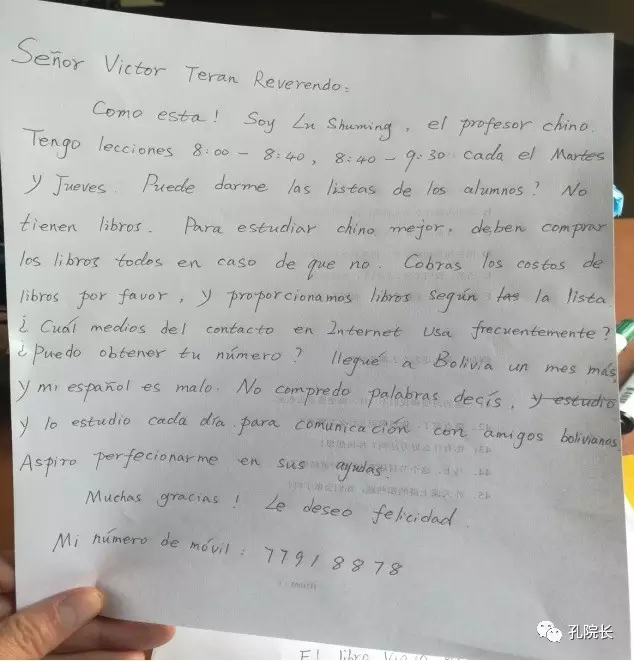 Señor Victor Teran Reverendo:
Como esta! Soy Lu Shuming, el profesor chino.
Tengo lecciones 8:00 - 8:40, 8:40 - 9:30 cada el Martes
y Jueves. Puede darme las listas de los alumnos? No
tienen libros. Para estudiar chino mejor, deben comprar
los libros todos en caso de que no. Cobras los costos de
libros por favor, y proporcionamos libros según las la lista
¿Cuál medios del contacto en Internet usa frecuentemente?
¿Puedo obtener tu número? llegué a Bolivia un mes más
y mi español es malo. No compredo palabras decís, y estudio
y lo estudio cada día para comunicación con amigos bolivianos
Aspiro perfecionarme en sus ayudas.
Muchas gracias! Le deseo felicidad.
Mi número de móvil: 77918878
El libro
孔院长